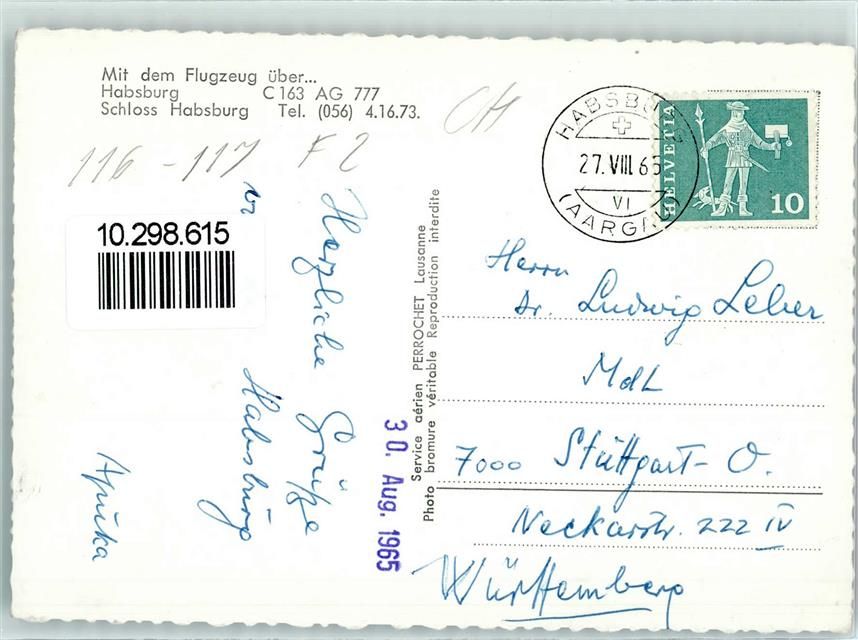 Mit dem Flugzeug über...
Habsburg C 163 AG 777
Schloss Habsburg Tel. (056) 4.16.73.
CH
116 - 117 F2
10.298.615
Herzliche Grüße
Habsburg
30. Aug. 1965
Service aérien PERROCHET Lausanne
Photo bromure véritable Reproduction interdite
HABSBURG
27.VIII.65
VI
(AARGAU)
HELVETIA
10
Herrn
Dr. Ludwig Leber
MdL
7000 Stuttgart-O.
Neckarstr. 222 IV
Württemberg